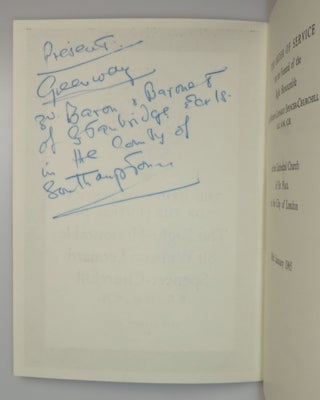 Present.
Greenway
3rd Baron & Baronet
of Stanbridge Earls.
in the County of
Southampton.
ORDER OF SERVICE
for the Funeral of the
Right Honourable
SPENCER-CHURCHILL
Cathedral Church
of St. Paul
in the City of London
January 1965